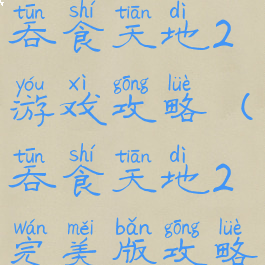 tūn shí tiān dì
吞食天地2
yóu xì gōng lüè
游戏攻略（
tūn shí tiān dì
吞食天地2
wán měi bǎn gōng lüè
完美版攻略